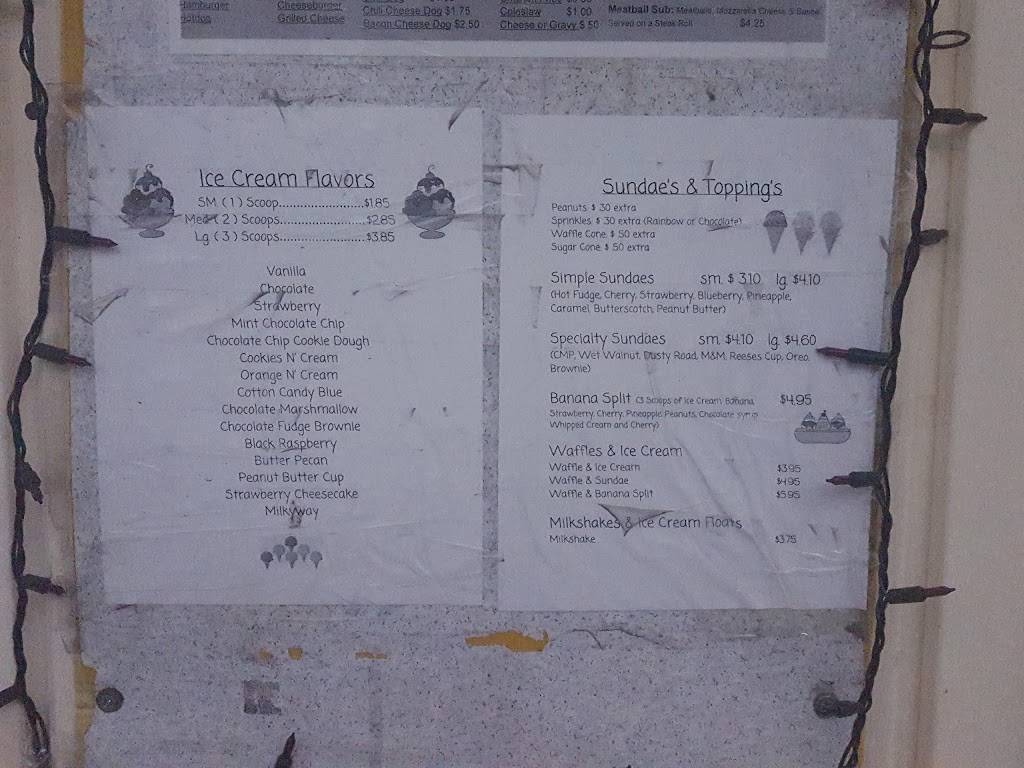 Hamburger
Hotdog
Cheeseburger
Grilled Cheese
Chili Cheese Dog $1.75
Bacon Cheese Dog $2.50
Coleslaw $1.00
Cheese or Gravy $.50
Meatball Sub: Meatballs, Mozzarella Cheese, & Sauce
Served on a Steak Roll $4.25
Ice Cream Flavors
SM (1) Scoop........................$1.85
Med (2) Scoops.........................$2.85
Lg (3) Scoops.........................$3.85
Vanilla
Chocolate
Strawberry
Mint Chocolate Chip
Chocolate Chip Cookie Dough
Cookies N' Cream
Orange N' Cream
Cotton Candy Blue
Chocolate Marshmallow
Chocolate Fudge Brownie
Black Raspberry
Butter Pecan
Peanut Butter Cup
Strawberry Cheesecake
Milkyway
Sundae's & Topping's
Peanuts $.30 extra
Sprinkles $.30 extra (Rainbow or Chocolate)
Waffle Cone $.50 extra
Sugar Cone $.50 extra
Simple Sundaes sm. $3.10 lg. $4.10
(Hot Fudge, Cherry, Strawberry, Blueberry, Pineapple,
Caramel, Butterscotch, Peanut Butter)
Specialty Sundaes sm. $4.10 lg. $4.60
(CMP, Wet Walnut, Dusty Road, M&M, Reeses Cup, Oreo,
Brownie)
Banana Split (3 Scoops of Ice Cream Banana, $4.95
Strawberry, Cherry, Pineapple, Peanuts, Chocolate syrup
Whipped Cream and Cherry)
Waffles & Ice Cream
Waffle & Ice Cream $3.95
Waffle & Sundae $4.95
Waffle & Banana Split $5.95
Milkshakes & Ice Cream Floats
Milkshake $3.75